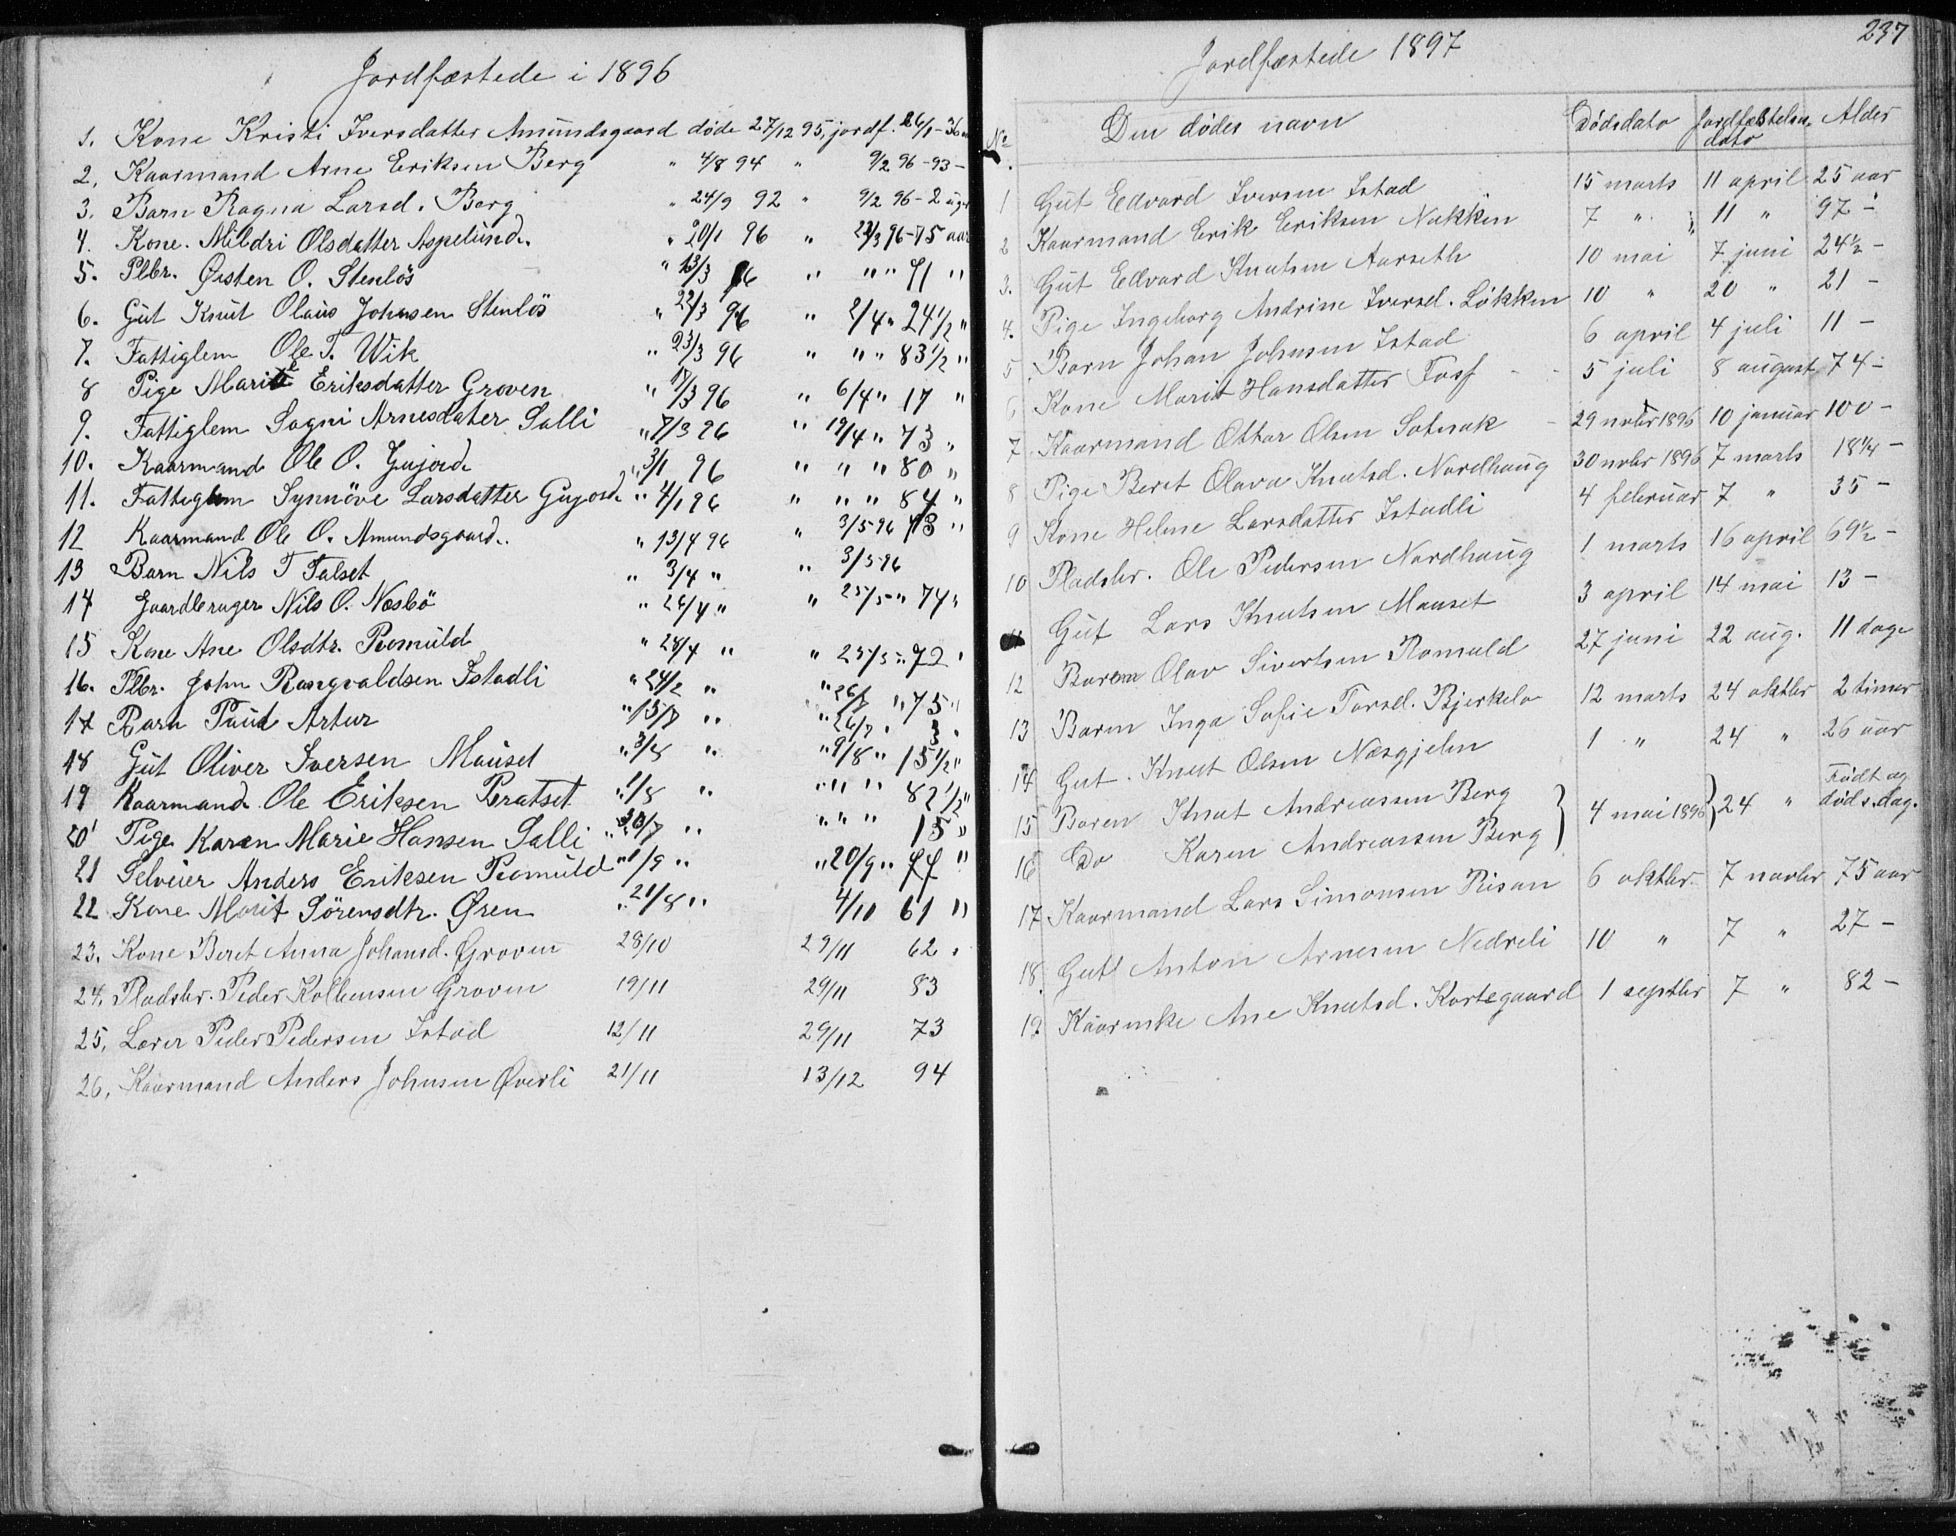 Jordfæstede i 1896
1. Kone Kristi Iversdatter Amundsgaard døde 27/12 95, jordf. 26/1 - 36
2. Kaarmand Arne Eriksen Berg " 4/8 94 " 9/2 96 - 93 -
3. Barn Ragna Larsd. Berg " 24/9 92 " 9/2 96 - 2 uger
4. Kone. Mildri Olsdatter Aspelund. " 20/1 96 " 22/3 96 - 75 aar
5. Plbr. Østen O. Stenløs " 13/3 96 " " " 71 "
6. Gut Knut Olaus Johnsen Stenløs " 22/3 96 " 2/4 " 24 1/2 "
7. Fattiglem Ole T. Wik " 23/3 96 " " " 83 1/2 "
8 Pige Marit Eriksdatter Groven " 17/3 96 " 6/4 " 17 "
9. Fattiglem Sagni Arnesdater Salli " 7/3 96 " 19/4 " 73 "
10. Kaarmand Ole O. Gujord " 3/1 96 " " " 80 "
11. Fattiglem Synnöve Larsdatter Gujord " 4/1 96 " " " 84 "
12 Kaarmand Ole O. Amundsgaard.. " 13/4 96 " 3/5 96 73 "
13 Barn Nils T Talset " 3/4 " " 3/5 96
14 Gaardbruger Nils O. Næsbö " 26/4 " " 25/5 " 74 "
15 Kone Ane Olsdtr. Romuld " 28/4 " " 25/5 " 72 "
16. Plbr. John Rangvaldsen Istadli " 24/2 " " 26/7 " 75 "
17 Barn Paul Artur " 15/7 " " 26/7 " 3 "
18 Gut Oliver Iversen Mauset " 3/8 " " 9/8 " 15 1/2 "
19 Kaarmand Ole Eriksen Bratset " 1/8 " " " " 82 1/2 "
20 Pige Karen Marie Hansen Salli " 28/7 " " " " 15 "
21 Selveier Anders Eriksen Romuld " 1/9 " " 20/9 " 77 "
22 Kone Marit Sörensdtr. Øren " 21/8 " 4/10 61 "
23. Kone Beret Anna Johansd. Groven 28/10 29/11 62 "
24. Pladsbr. Peder Kolbensen Groven 19/11 29/11 83
25. Lærer Peder Pedersen Istad 12/11 29/11 73
26. Kaarmand Anders Johnsen Øverli 21/11 13/12 94
237
Jordfæstede 1897
No Den dødes navn Dødsdato Jordfæstelsesdato Alder
1 Gut Edvard Iversen Istad 15 marts 11 april 25 aar
2 Kaarmand Erik Eriksen Nakken 7 " 11 " 97 -
3. Gut Edvard Knutsen Aarseth 10 mai 7 juni 24 1/2 -
4. Pige Ingeborg Andrine Iversd. Løkken 10 " 20 " 21 -
5 Barn Johan Johnsen Istad 6 april 4 juli 11 -
6 Kone Marit Hansdatter Foss 5 juli 8 august 74 -
7 Kaarmand Ottar Olsen Sotnak 29 novbr 1896 10 januar 100 -
8 Pige Beret Olava Knutsd. Nordhaug 30 novbr 1896 7 marts 18 1/4 -
9 Kone Helene Larsdatter Istadli 4 februar 7 " 35 -
10 Pladsbr. Ole Pedersen Nordhaug 1 marts 16 april 69 1/2 -
11 Gut Lars Knutsen Mauset 3 april 14 mai 13 -
12 Barn Olav Sivertsen Romuld 27 juni 22 aug. 11 dage
13 Barn Inga Sofie Torsd. Bjerkelo 12 marts 24 oktbr 2 timer
14 Gut. Knut Olsen Næsgjelen 1 " 24 " 26 aar
15 Baren Knut Andreassen Berg } 4 mai 1896 } 24 " Født og død s. dag.
16 Do Karen Andreassen Berg
17 Kaarmand Lars Simonsen Risan 6 oktbr. 7 novbr 75 aar
18. Gut Anton Arnesen Nedreli 10 " 7 " 27 -
19. Kaarenke Ane Knutsd. Kortegaard 1 septbr 7 " 82 -